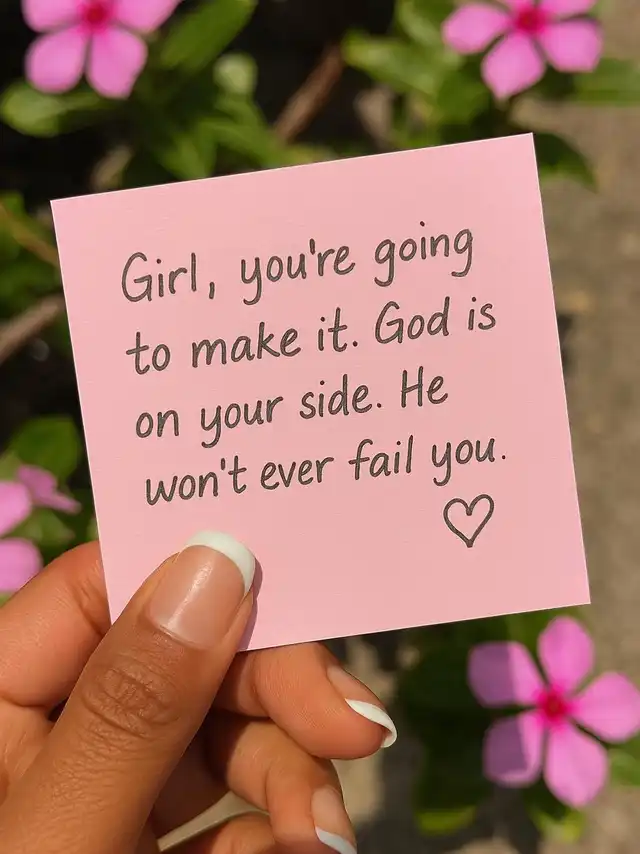 Girl, you're going
to make it. God is
on your side. He
won't ever fail you.
♡